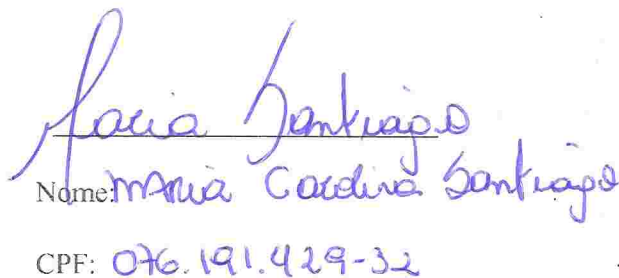 Maria Santiago
Nome: Maria Cardina Santiago
CPF: 076.191.429-32